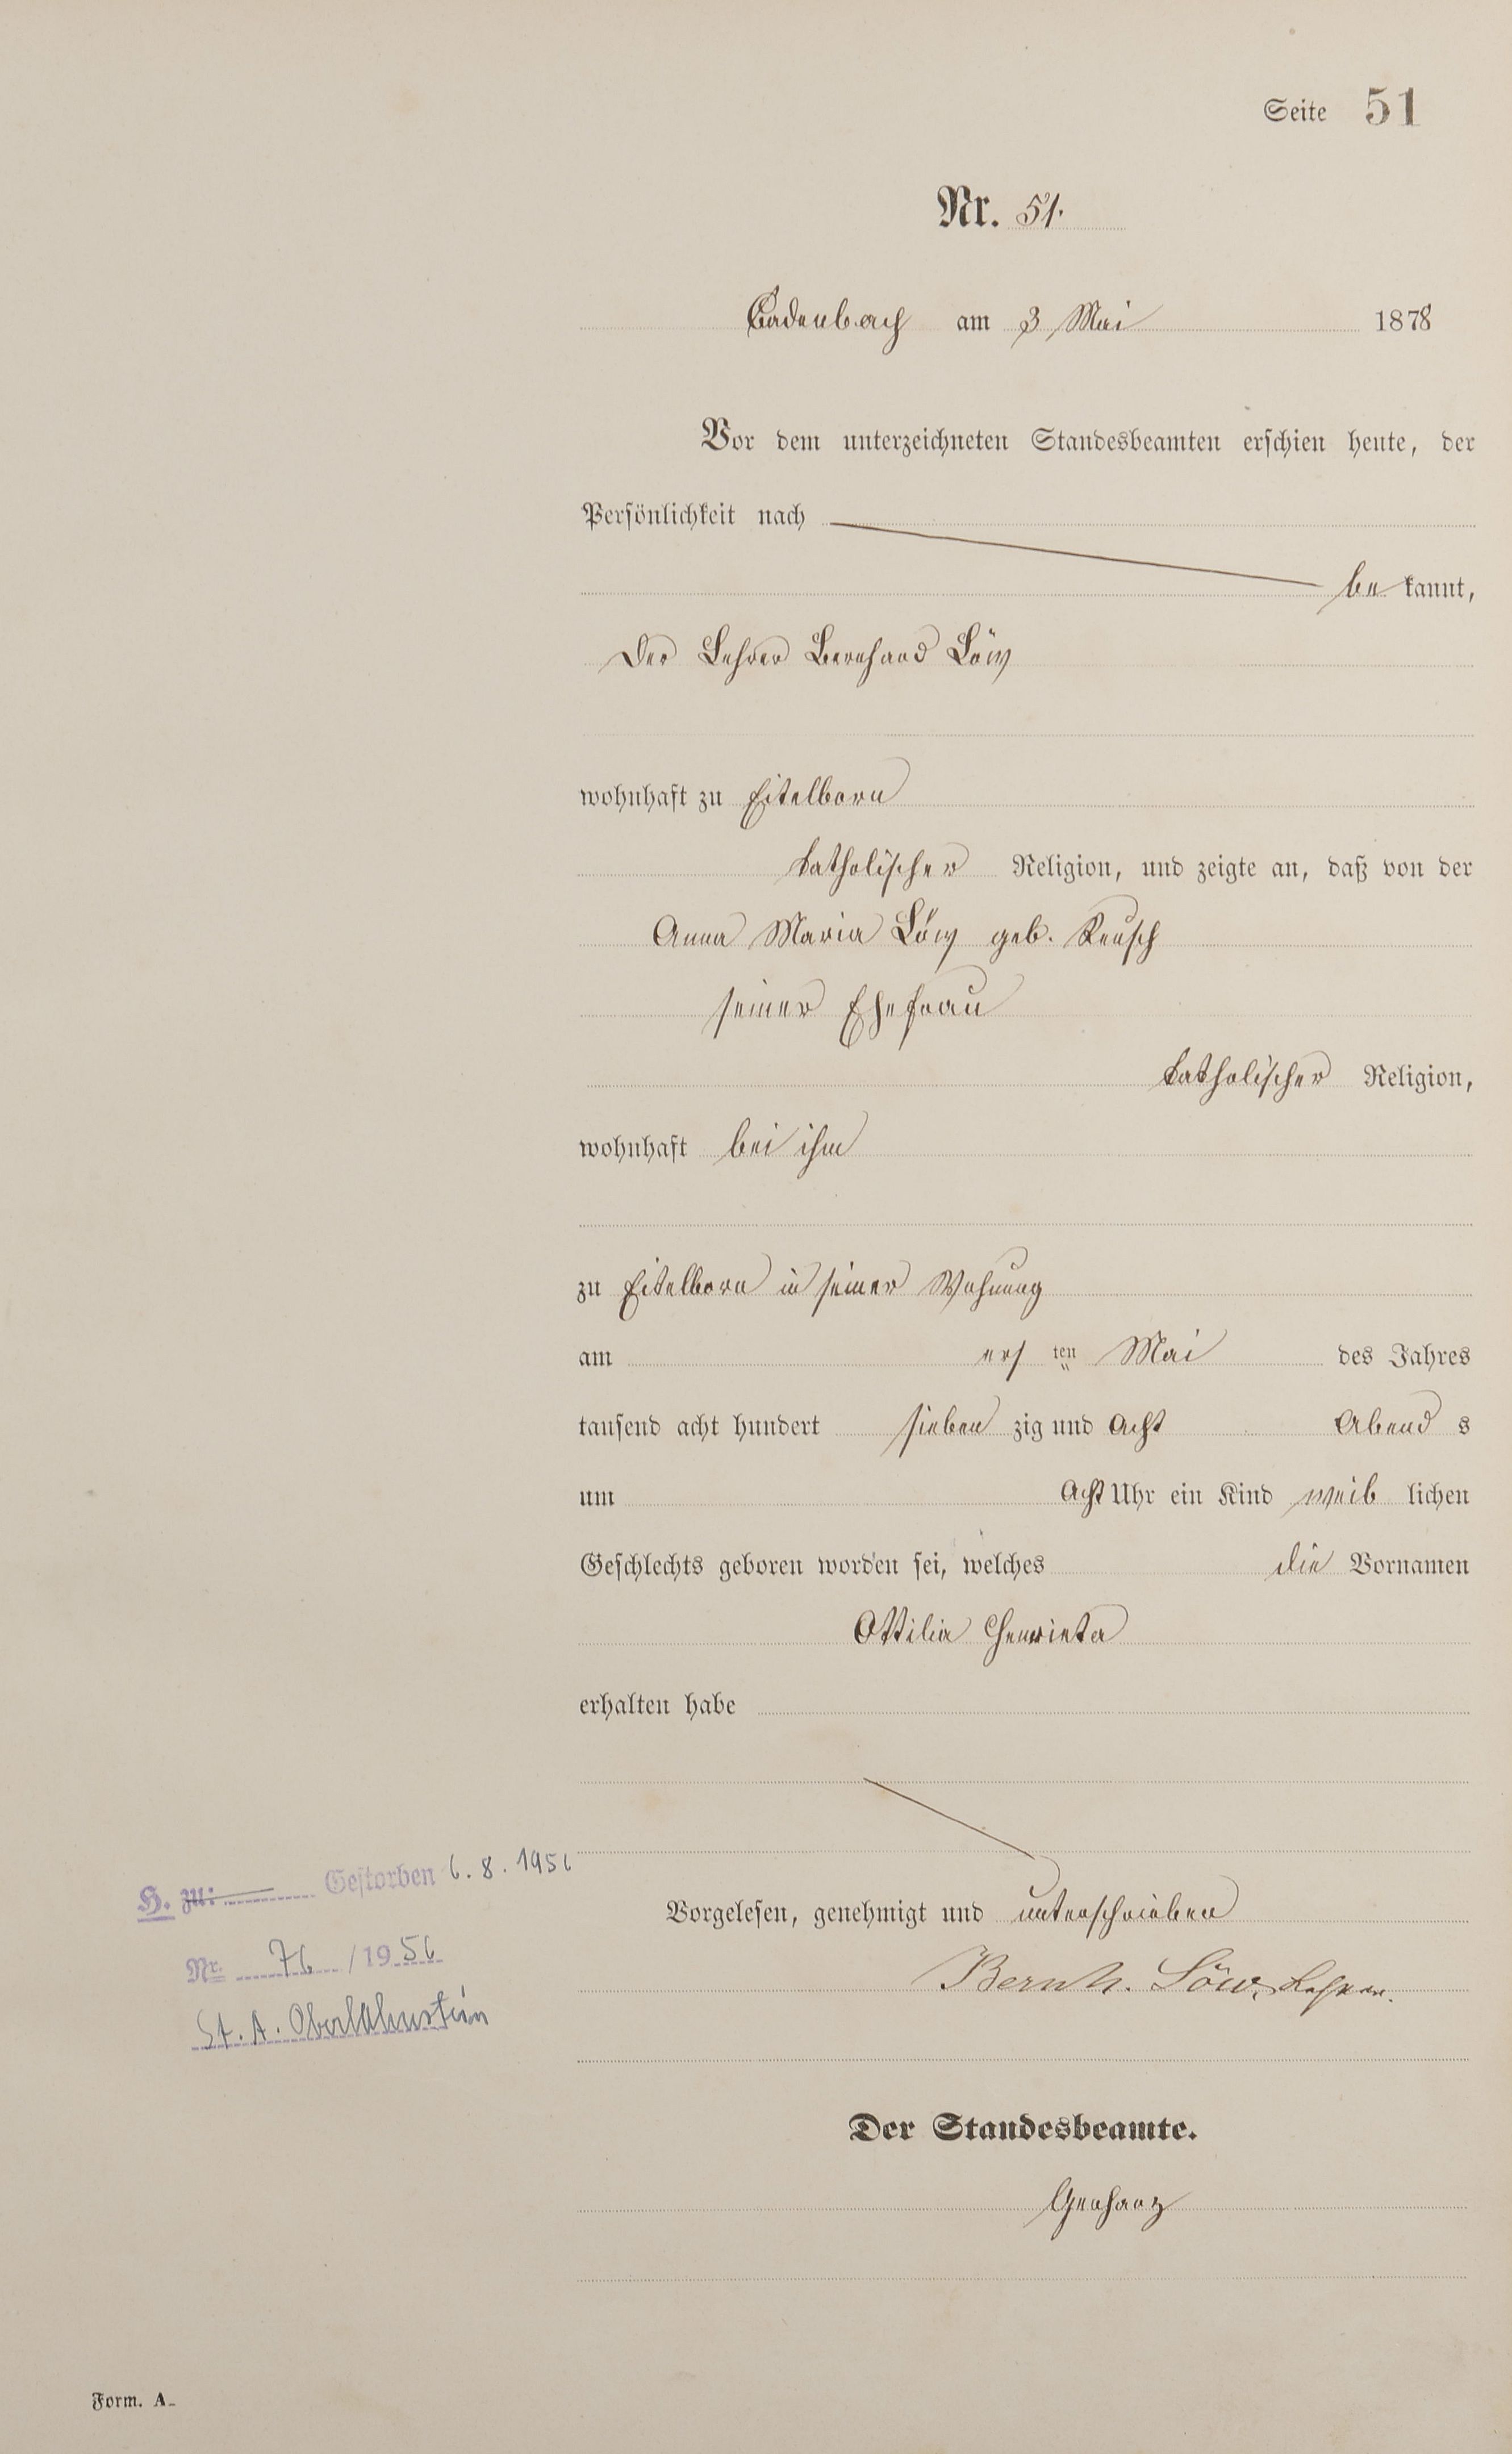 Seite 51
Nr. 51.
Cadenbach am 3 Mai 1878
Vor dem unterzeichneten Standesbeamten erschien heute, der
Persönlichkeit nach
be kannt,
Der Lehrer Bernhard Löw
wohnhaft zu Eitelborn
katholischer Religion, und zeigte an, daß von der
Anna Maria Löw geb. Reusch
seiner Ehefrau
katholischer Religion,
wohnhaft bei ihm
zu Eitelborn in seiner Wohnung
am ers ten Mai des Jahres
tausend acht hundert sieben zig und Acht Abend s
um Acht Uhr ein Kind weib lichen
Geschlechts geboren worden sei, welches die Vornamen
Ottilia Henrieta
erhalten habe
H. zu: Gestorben 6.8.1956
Nr. 76 /1956
St. A. Oberlahnstein
Vorgelesen, genehmigt und unterschrieben
Bernh. Löw, Lehrer.
Der Standesbeamte.
Gerharz
Form. A.